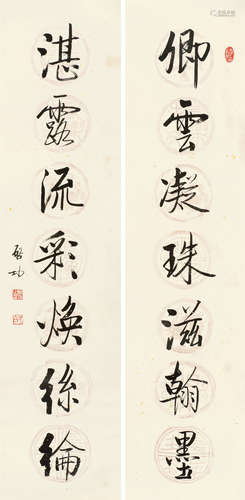 卿雲凝珠滋翰墨
湛露流彩煥絲綸
啟功